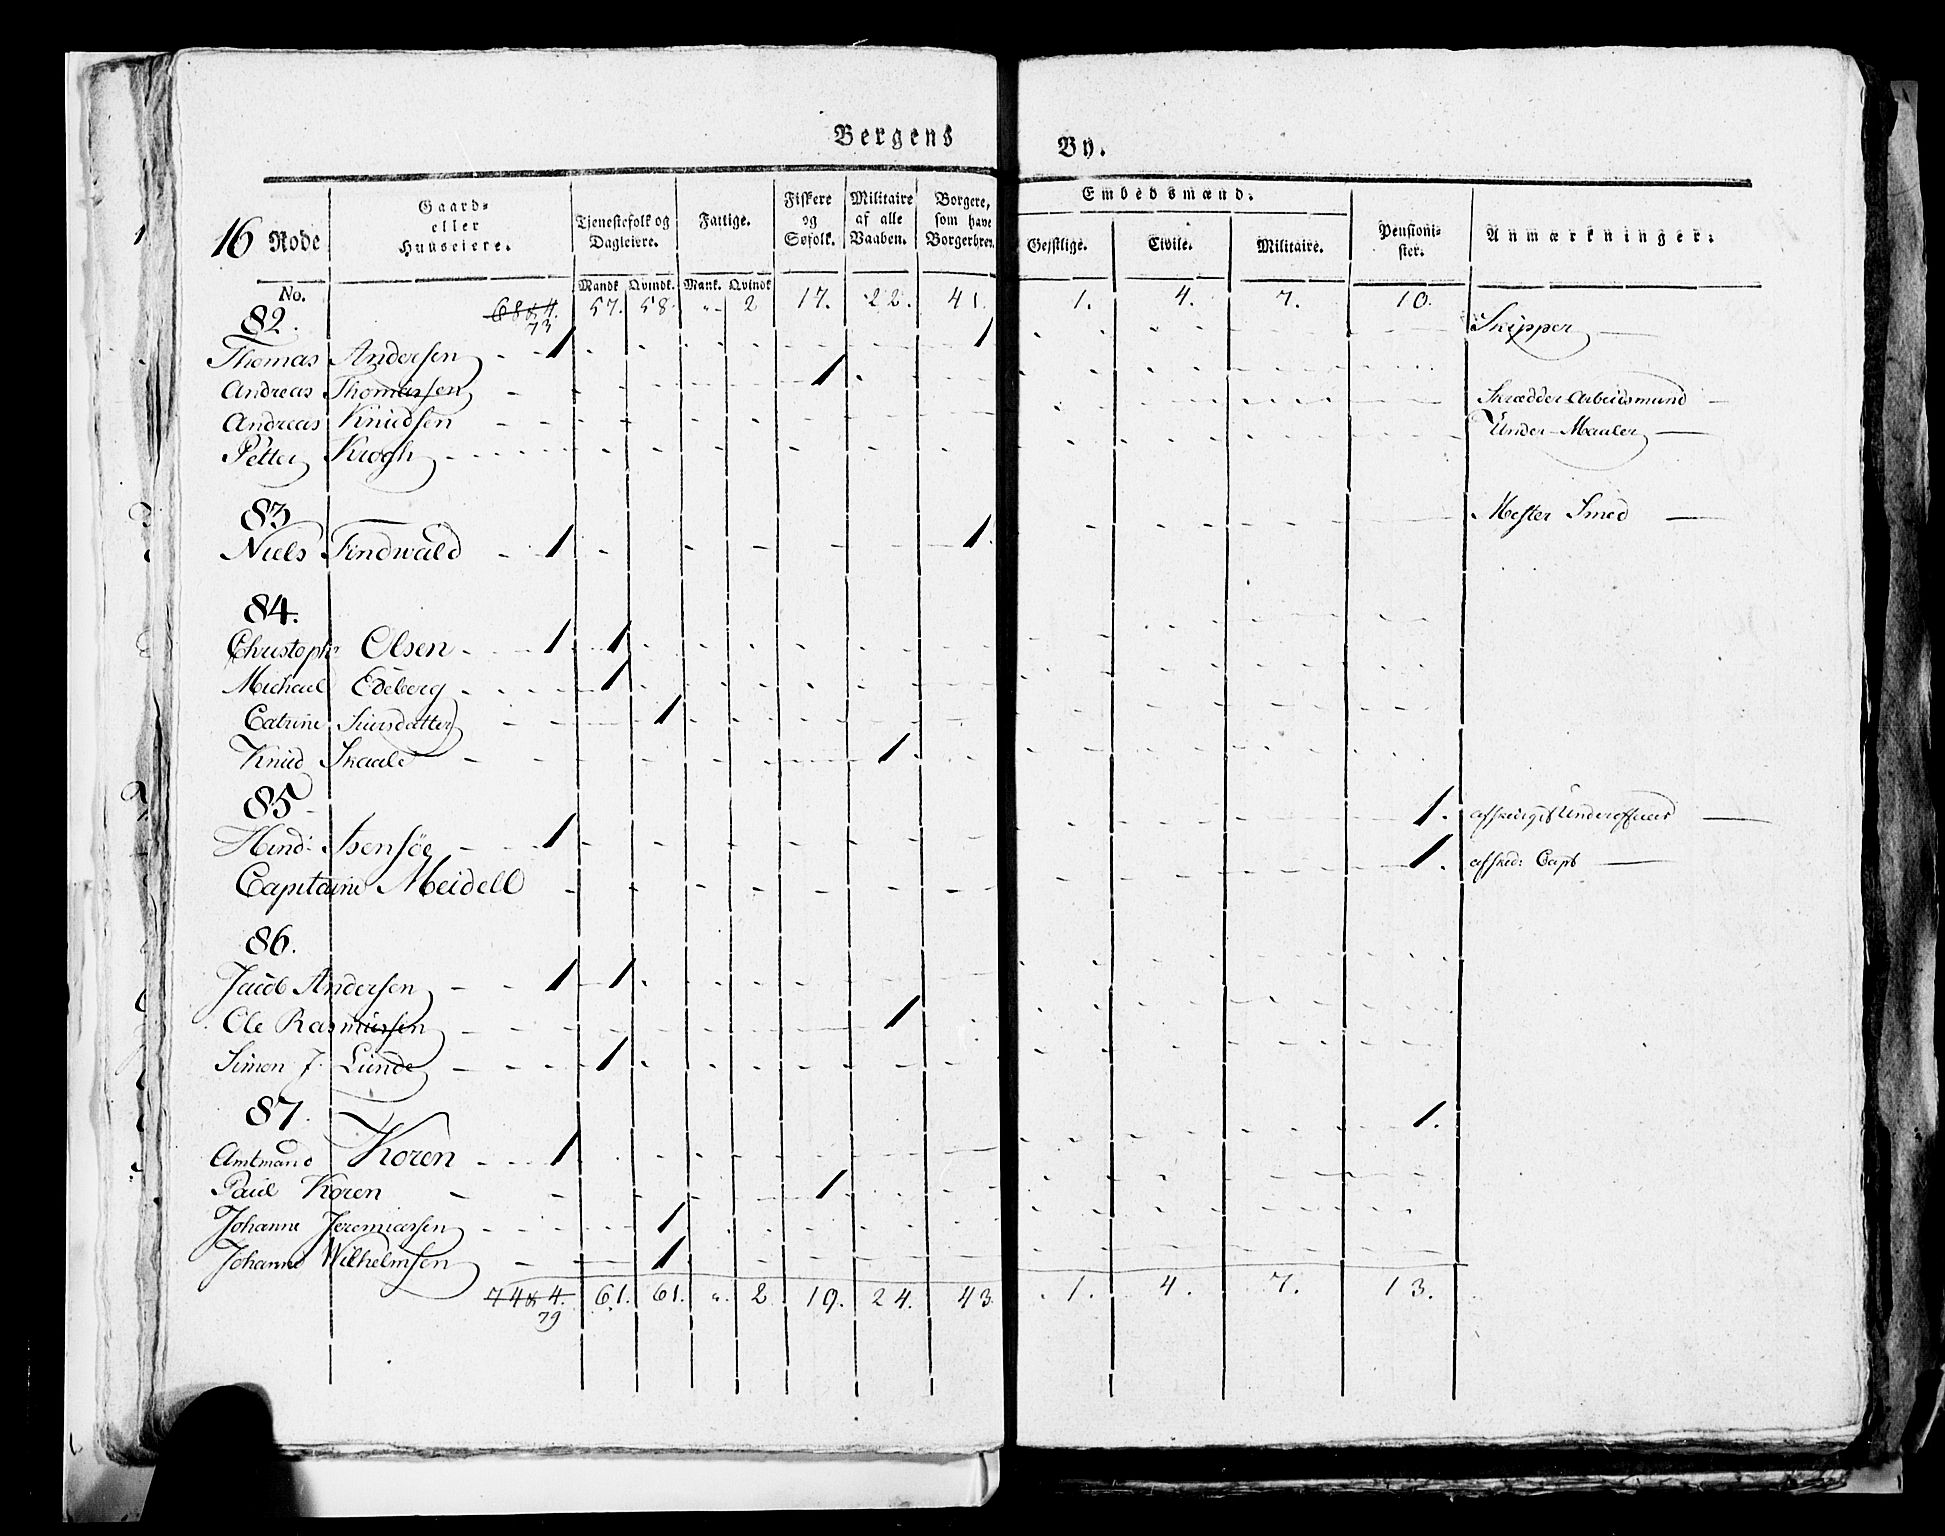 Bergens By.
16 Rode
Gaard- eller Huuseiere.
Tjenestefolk og Dagleiere.
Fattige.
Fiskere og Søfolk.
Militaire af alle Vaaben.
Borgere, som have Borgerbrev.
Embedsmænd.
Geistlige.
Civile.
Militaire.
Pensionister.
Anmærkninger.
No.
Mandk. Qvindk. Mank. Qvindk.
68 & 4. 57. 58. „ 2 17. 22. 41. 1. 4. 7. 10.
73
82.
Thomas Andersen 1 1 Skipper
Andreas Thomassen 1
Andreas Knudsen Skrædder Arbeidsmand
Petter Krogh Under-Maaler
83
Niels Findwald 1 1. Mester Smed
84.
Christoph Olsen 1 1
Michael Edeberg 1
Catrine 1
Knud Skaale 1
85
Hend: Isensöe 1 1. Underofficer
Capitaine Meidell 1. afsked: Capt
86.
Jacob Andersen 1 1
Ole Rasmussen 1
Simon J. Lunde 1
87.
Amtmand Koren 1 1.
Paul Koren 1
Johanne Jeremiassen 1
Johanne Wilhelmsen 1
74 & 4. 61. 61. „ 2 19. 24. 43 1. 4. 7. 13.
79